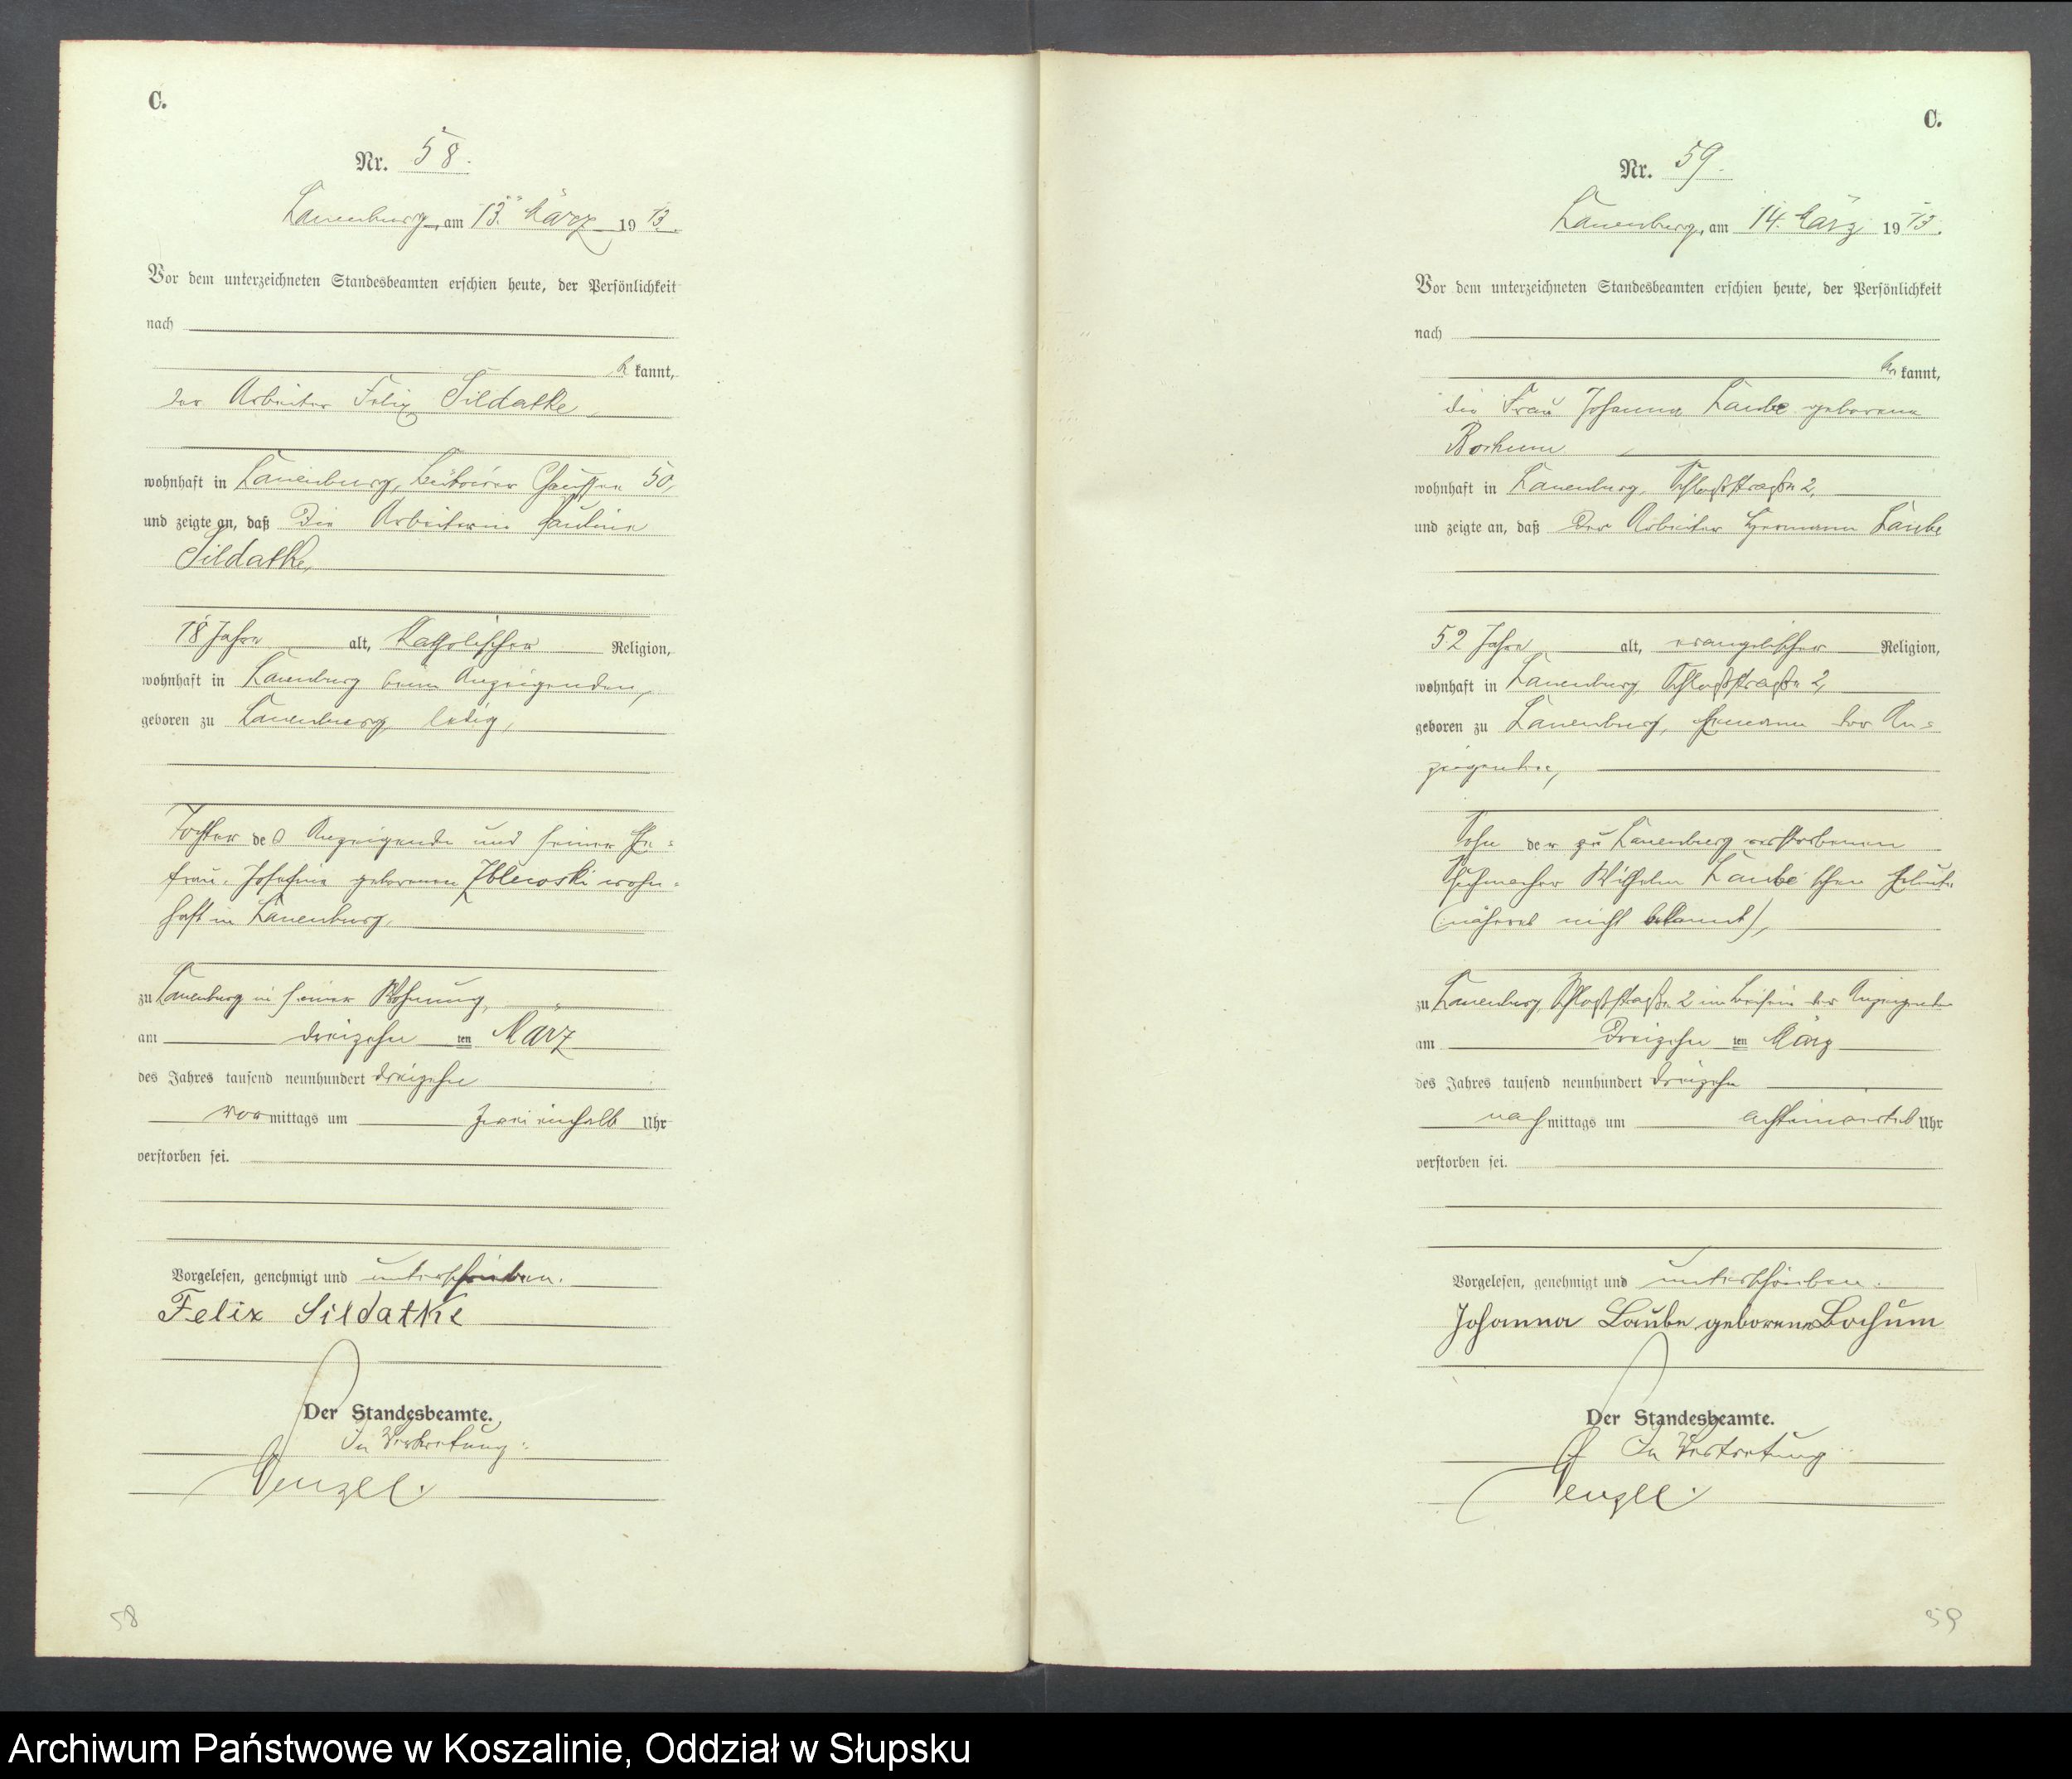 C.
Nr. 58.
Lauenburg, am 13. März 1913.
Vor dem unterzeichneten Standesbeamten erschien heute, der Persönlichkeit
nach
be kannt,
der Arbeiter Felix Sildatke,
wohnhaft in Lauenburg, Chaussee 50,
und zeigte an, daß die Arbeiterin Pauline
Sildatke,
18 Jahre alt, katholischer Religion,
wohnhaft in Lauenburg beim Anzeigenden,
geboren zu Lauenburg, ledig,
Tochter des Anzeigenden und seiner Ehe=
frau, Josefine geborenen Zblewski wohn=
haft in Lauenburg,
zu Lauenburg in seiner Wohnung,
am dreizehn ten März
des Jahres tausend neunhundert dreizehn
vor mittags um zwei einhalb Uhr
verstorben sei.
Vorgelesen, genehmigt und unterschrieben.
Felix Sildatke
Der Standesbeamte.
In Vertretung:
Wenzel.
58
C.
Nr. 59.
Lauenburg, am 14. März 1913.
Vor dem unterzeichneten Standesbeamten erschien heute, der Persönlichkeit
nach
be kannt,
die Frau Johanna Laube geborene
wohnhaft in Lauenburg, Schloßstraße 2,
und zeigte an, daß der Arbeiter Hermann Laube
52 Jahre alt, evangelischer Religion,
wohnhaft in Lauenburg, Schloßstraße 2,
geboren zu Lauenburg, Ehemann der An=
zeigenden,
Sohn der zu Lauenburg verstorbenen
Wilhelm Laube'schen Eheleute
(näheres nicht bekannt),
zu Lauenburg, Schloßstraße 2 im Beisein der Anzeigenden
am dreizehn ten März
des Jahres tausend neunhundert dreizehn
nach mittags um achteinviertel Uhr
verstorben sei.
Vorgelesen, genehmigt und unterschrieben.
Johanna Laube geborene Bochum
Der Standesbeamte.
In Vertretung:
Wenzel.
59
Archiwum Państwowe w Koszalinie, Oddział w Słupsku